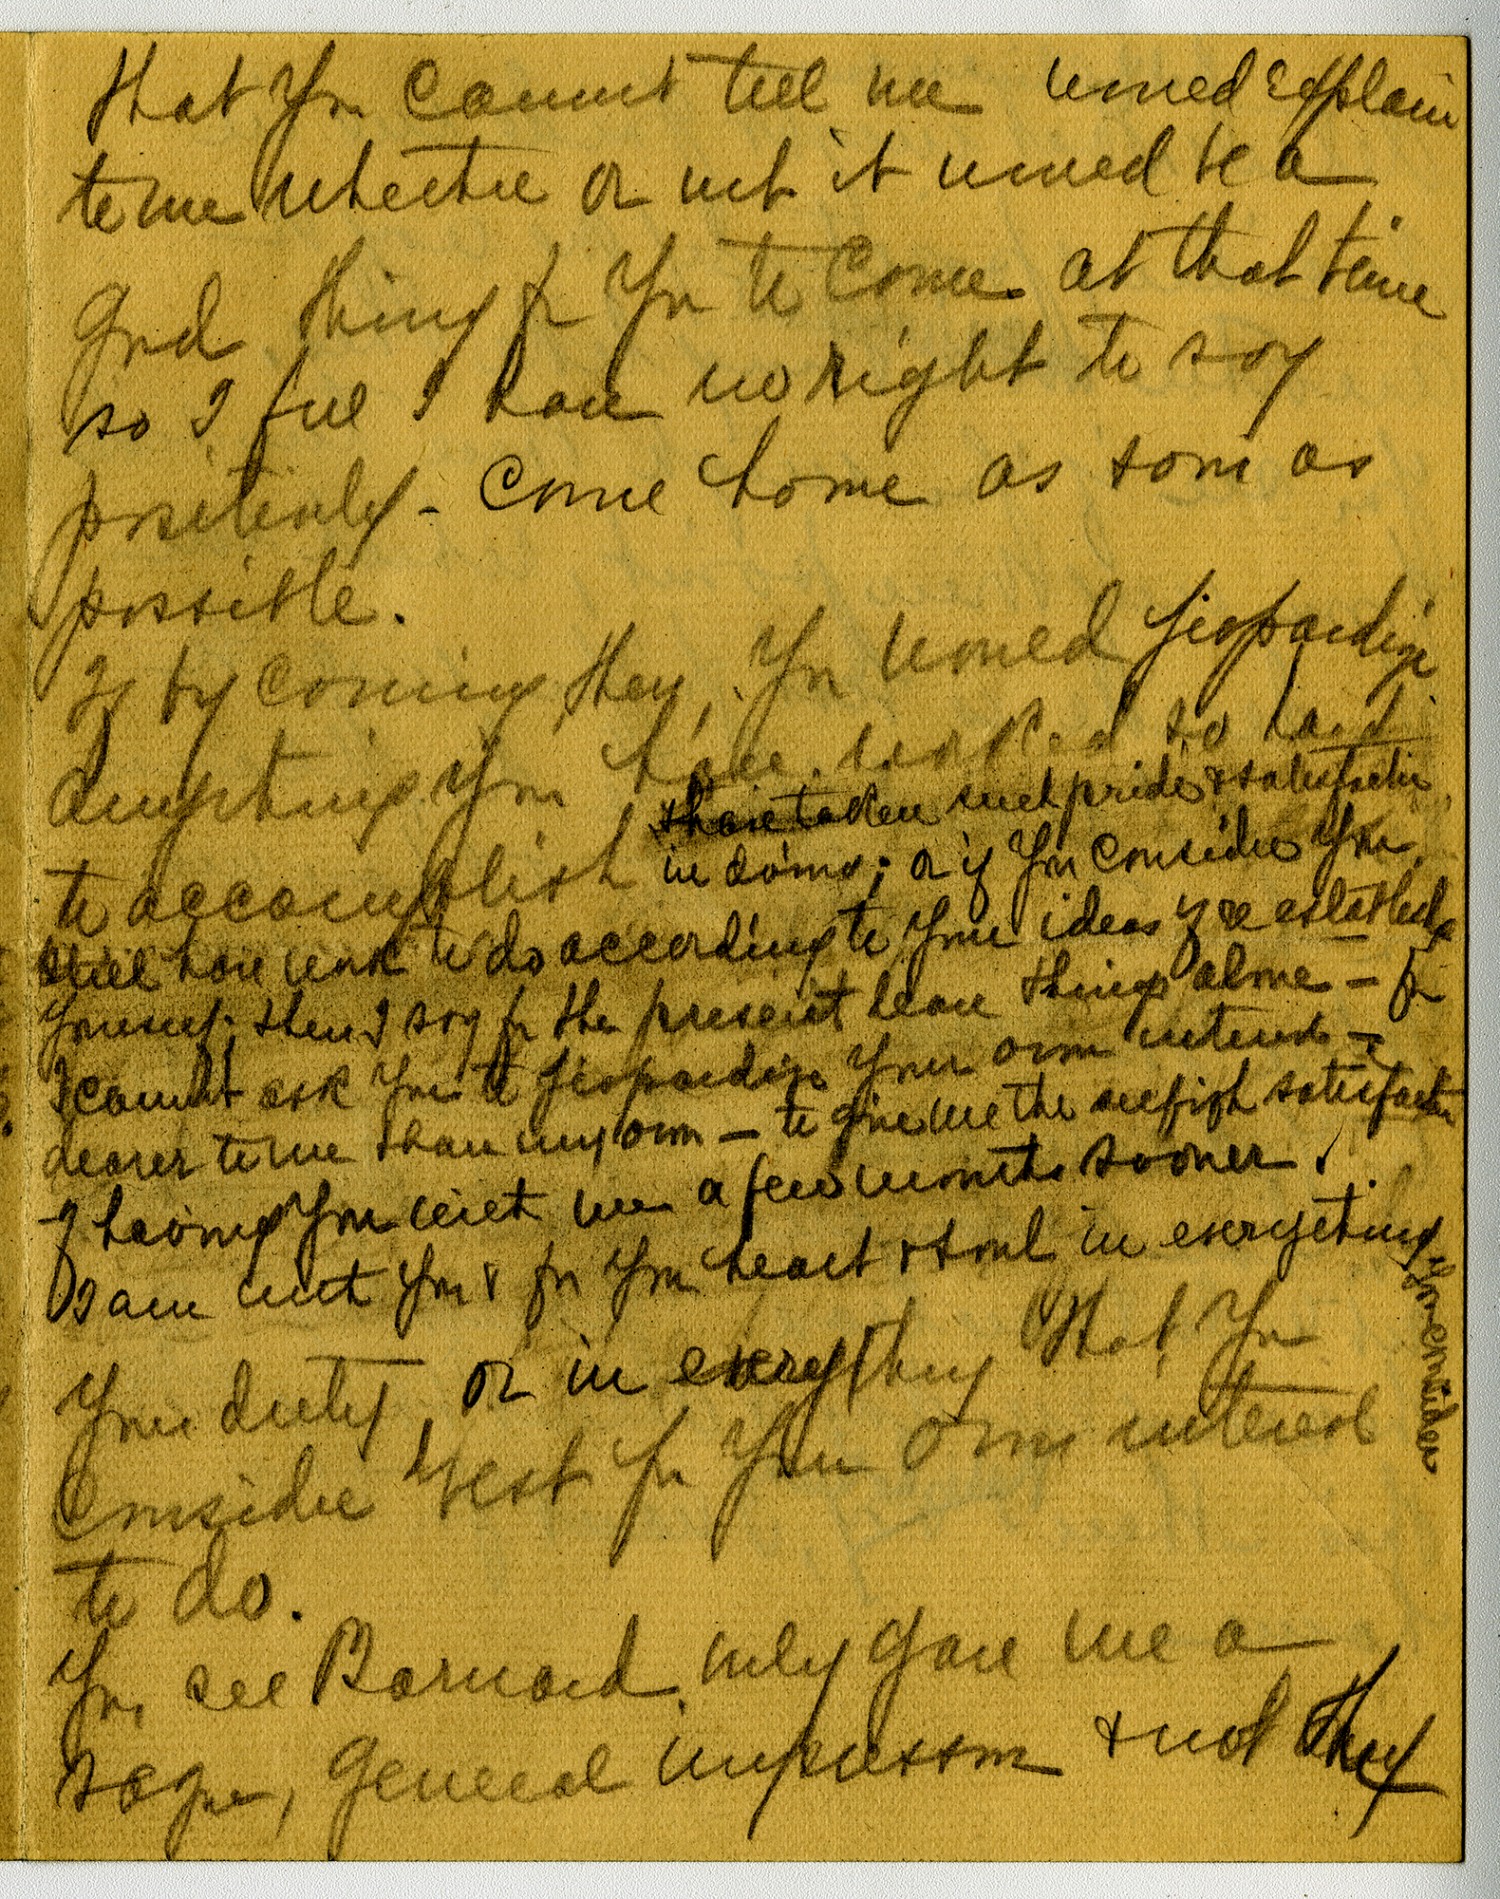 that you cannot tell me would explain
to me whether or not it would be a
good thing for you to come at that time
so I feel I have no right to say
positively - come home as soon as
possible.
If by coming, then, you would jeopardize
anything you have worked so hard
to accomplish & have taken such pride & satisfaction
in doing; or if you consider you
still have work to do according to your ideas
yourself; then I say for the present leave things alone - for
I cannot ask you to jeopardize your own interests -
dearer to me than my own - to give me the selfish satisfaction
of having you with me a few months sooner.
I am with you & for you heart & soul in everything you consider
your duty, or in everything that you
consider best for your own interest
to do.
You see Barnard only gave me a
vague, general impression & not they